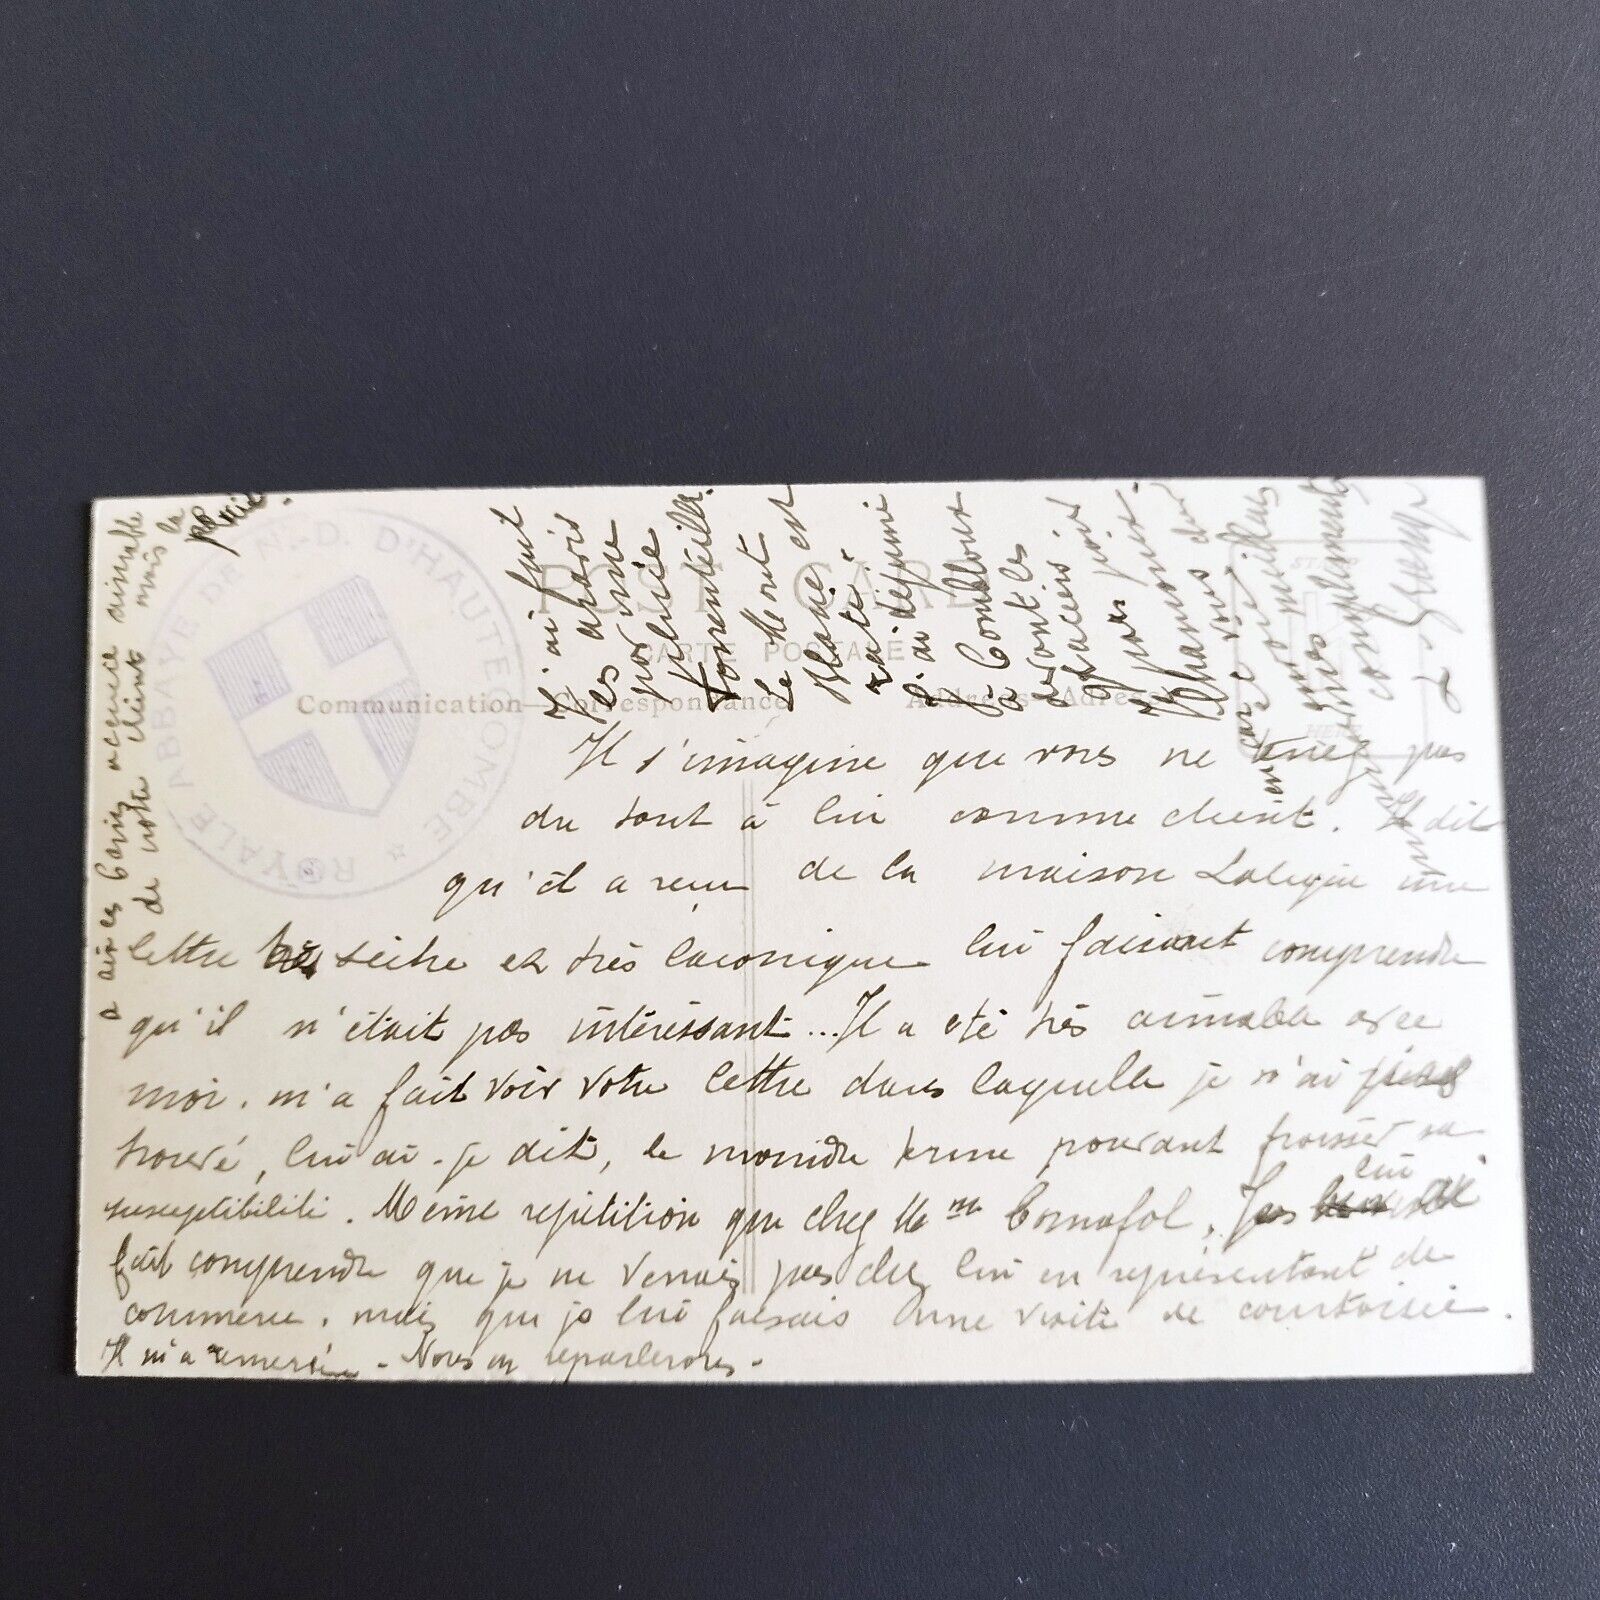 à aix les bains accueil aimable
de notre client mais la
pluie.
ROYALE ABBAYE DE N.-D. D'HAUTECOMBE
POST CARD
CARTE POSTALE
Communication–Correspondance
Address–Adresse
HERE
J'ai fait
les aravis
par une
pluie
torrentielle.
Le Mont
Blanc est
raté.
J'ai déjeuné
à Combloux
devant les
glaciers
Chamonix
vous
meilleurs
compliments
Il s'imagine que vous ne tenez pas
du tout à lui comme client. Il dit
qu'il a reçu de la maison une
lettre sèche et très laconique lui faisant comprendre
qu'il n'était pas intéressant... Il a été très aimable avec
moi. m'a fait voir votre lettre dans laquelle je n'ai pas
trouvé, lui ai-je dit, le moindre terme pouvant froisser sa
susceptibilité. Même répétition que chez Mme lui
fait comprendre que je ne venais pas chez lui en représentant de
commerce. mais que je lui faisais une visite de courtoisie.
Il m'a remercié - Nous en reparlerons -